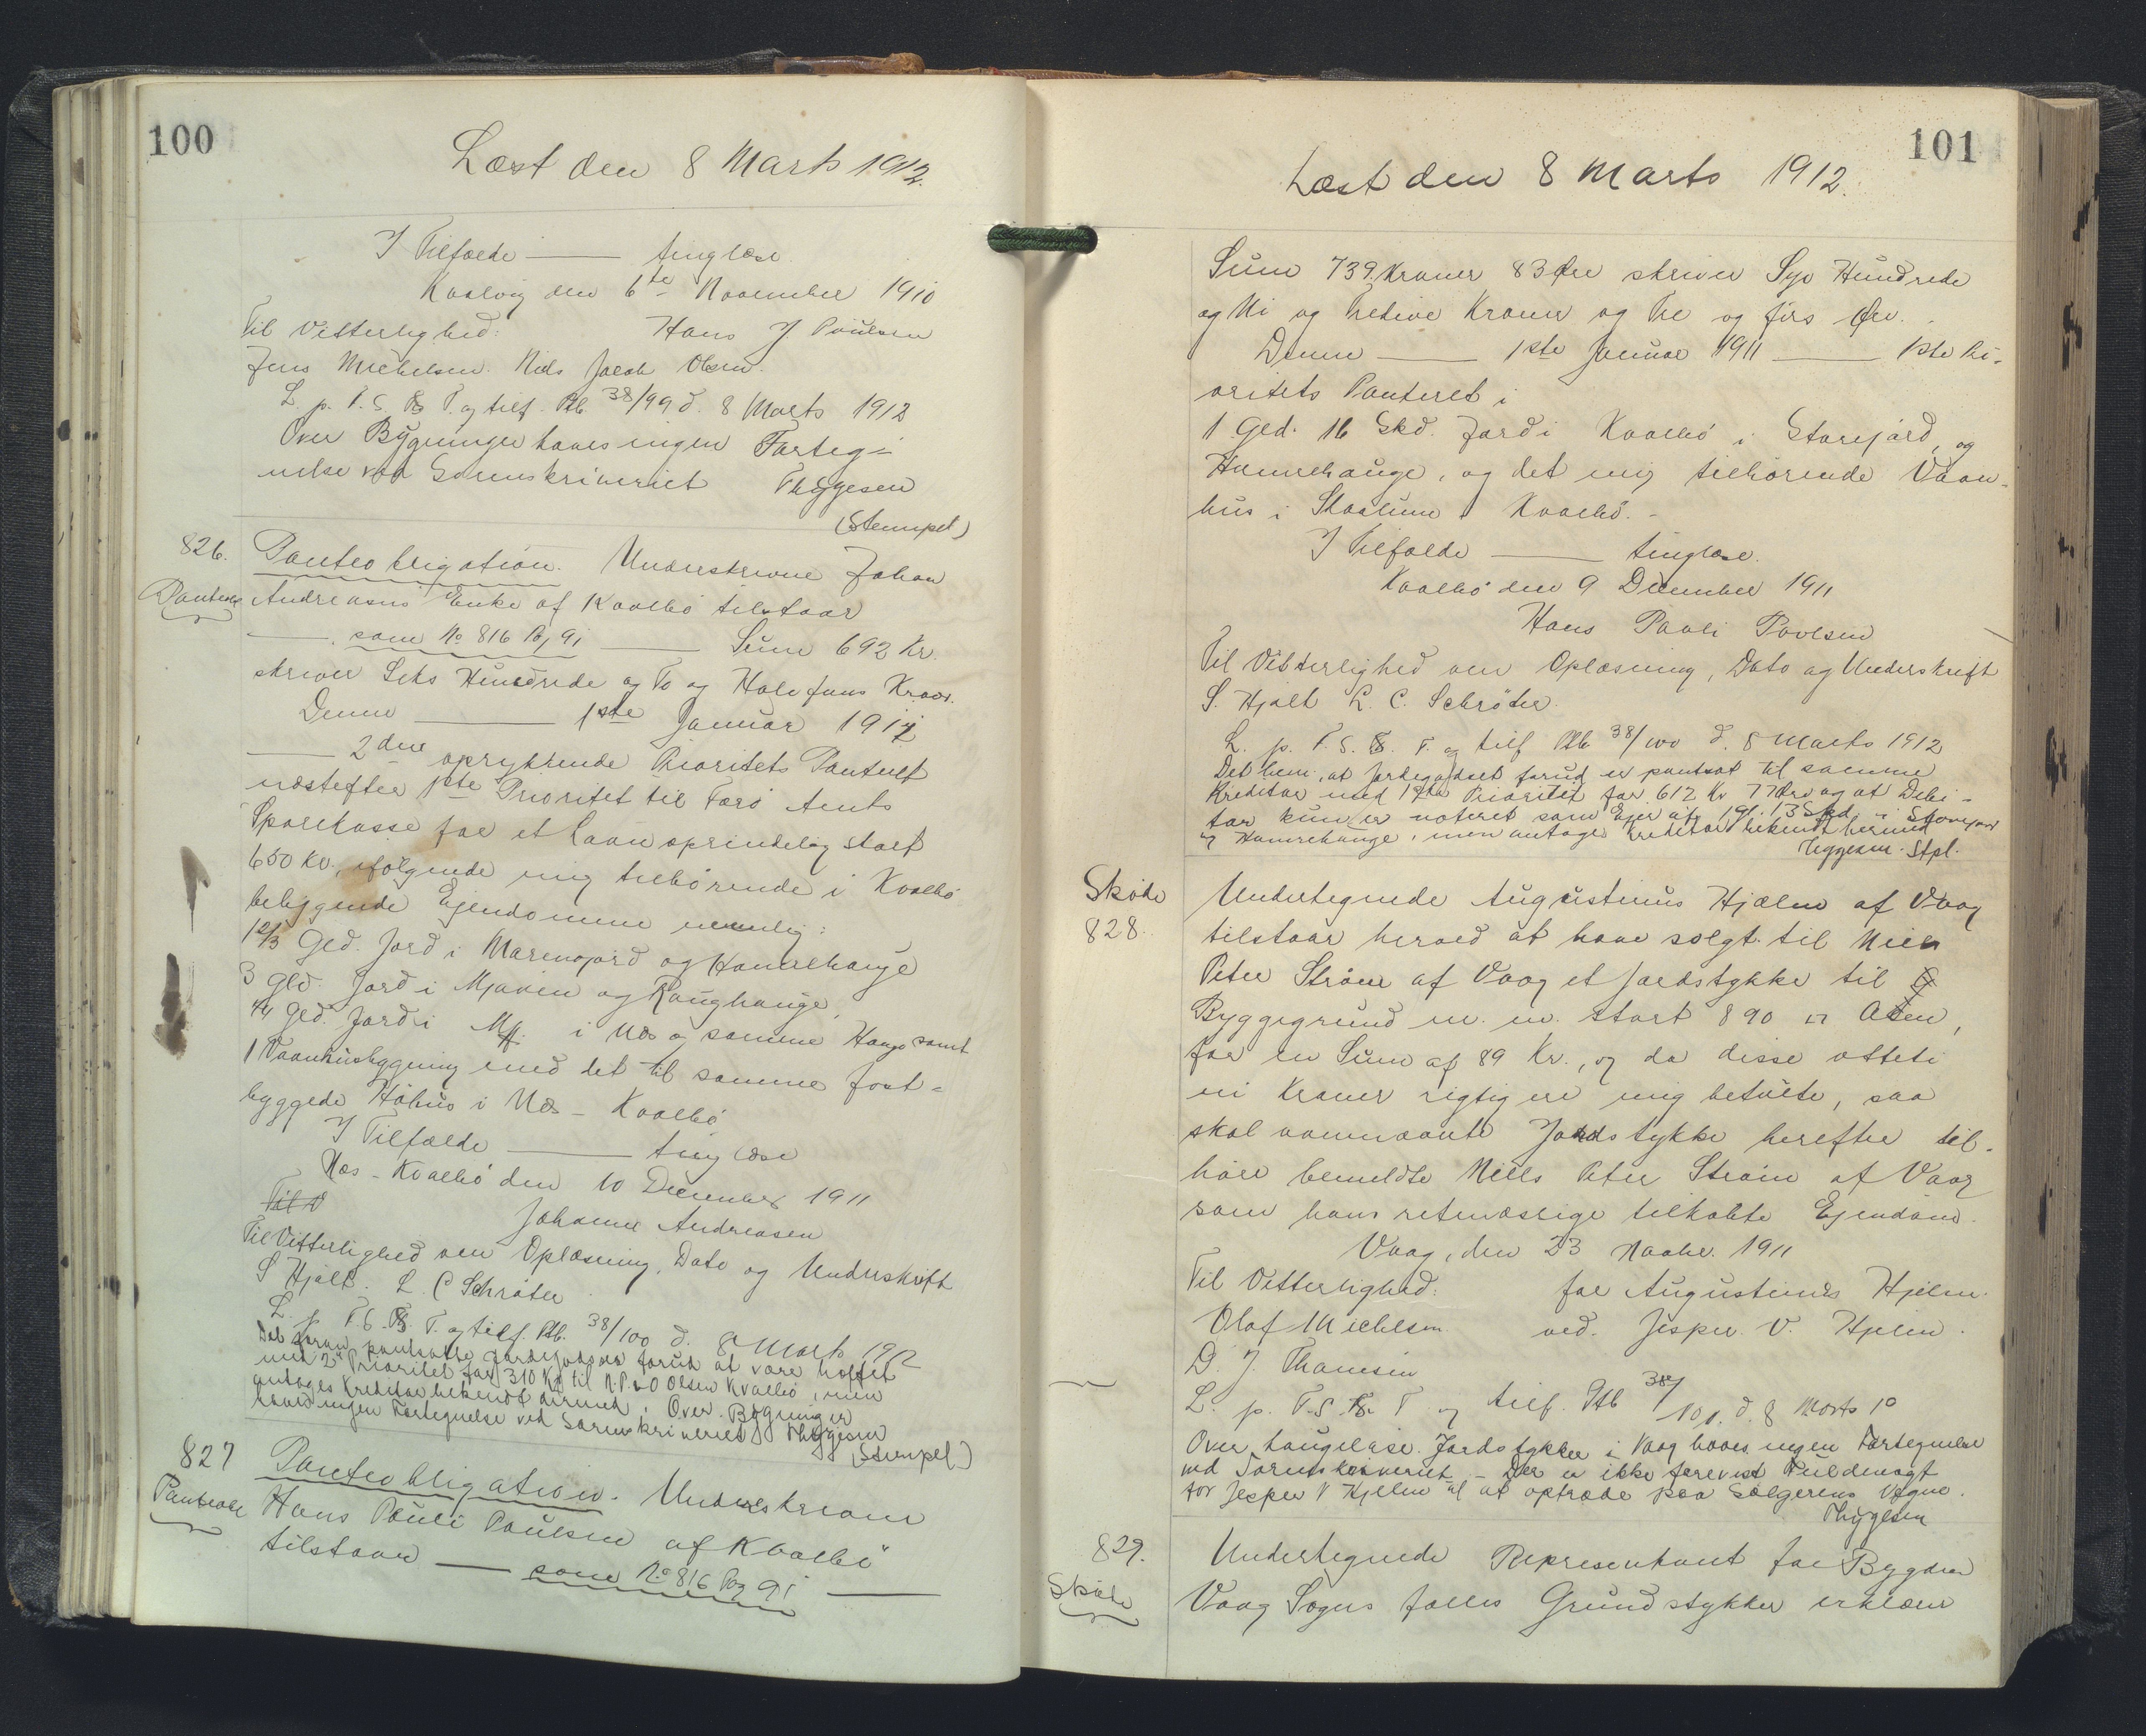 100
Læst den 8 Marts 1912.
I Tilfælde —— tinglæse.
Kvalvig den 6te November 1910
Til Vitterlighed: Hans J. Poulsen
Jens Michelsen. Niels Jacob Olsen.
L. p. T. S. T. og tilf. Ptb. 38/99 d. 8 Marts 1912
Over Bygninger haves ingen Forteg-
nelse ved Sorenskriveriet Thygesen
(Stempel)
826. Panteobligation. Underskrevne Johan
Panteobl. Andreasens Enke af Kvalbö tilstaar
—— som No 816 Pag 91 —— Sum 692 Kr.
skriver Seks Hundrede og To og Halvfems Kroner.
Denne —— 1ste Januar 1912
—— 2den oprykkende Prioritets Panteret
næstefter 1ste Prioritet til Færö Amts
Sparekasse for et Laan oprindelig stort
650 Kr., ifölgende mig tilhörende i Kvalbö
beliggende Ejendomme nemlig:
1 2/3 Gld. Jord i Marenojord og Hamrehauge
3 Gld. Jord i Mjavin og Haughauge,
Gld. Jord i i Næs og samme Hauge samt
1 Vaanhusbygning med det til samme fast-
byggede Höhus i Næs - Kvalbö
I Tilfælde —— tinglæse
Næs - Kvalbö den 10 December 1911
Til V
Johanne Andreasen
Til Vitterlighed om Oplæsning, Dato og Underskrift
S Hjalt. L. C Schröter
L. p. T. S. T. og tilf. Ptb. 38/100 d. 8 Marts 1912
pantsatte forud at være hæftet
med 2den Prioritet for 310 Kr til Olsen Kvalbö, men
antages Kreditor bekendt hermed. Over Bygninger
haves ingen Fortegnelse ved Sorenskriveriet Thygesen
(Stempel)
827 Panteobligation. Underskrevne
Panteobl. Hans Pauli Poulsen af Kvalbö
tilstaar —— som No 816 Pag 91 ——
101
Læst den 8 Marts 1912.
Sum 739 Kroner 83 Öre skriver Syv Hundrede
og Ni og Tredive Kroner og Tre og firs Öre.
Denne —— 1ste Januar 1911 —— 1ste Pri-
oritets Panteret i
1 Gld. 16 Skd. Jord i Kvalbö i Storejord, og
Hamrehauge, og det mig tilhörende Vaan-
hus i Skaalum i Kvalbö. -
I Tilfælde —— tinglæse.
Kvalbö den 9 December 1911
Hans Pauli Povlsen
Til Vitterlighed om Oplæsning, Dato og Underskrift
S. Hjalt L. C. Schröter.
L. p. T. S. T. og tilf Ptb 38/100 d. 8 Marts 1912
Det bem., at Jordegodset forud er pantsat til samme
Kreditor med 1ste Prioritet for 612 Kr 77 Öre og at Debi-
tor kun er noteret som Ejer af 1 gl. 13 Skd i Storejord
og Hamrehauge, men antages Kreditor bekendt hermed
Thygesen. Stpl.
Sköde Undertegnede Augustinus Hjælm af Vaag
828. tilstaar herved at have solgt til Niels
Peter Ström af Vaag et Jordstykke til
Byggegrund m. m. stort 890 □ Alen,
for en Sum af 89 Kr., og da disse otteti
ni Kroner rigtig ere mig betalte, saa
skal ovennævnte Jordstykke herefter til-
höre bemeldte Niels Peter Ström af Vaag
som hans retmæssige tilkøbte Ejendom.
Vaag, den 23 Novbr. 1911
Til Vitterlighed: for Augustinus Hjelm.
Olaf Michelsen ved. Jesper. V. Hjelm.
D. J. Thomsen
L. p. T. S. T og tilf. Ptb 38/101. d. 8 Marts 1912
Over haugelose Jordstykker i Vaag haves ingen Fortegnelse
ved Sorenskriveriet. - Der er ikke forevist Fuldmagt
for Jesper V Hjelm til at optræde paa Sælgerens Vegne.
Thygesen
829. Undertegnede Repræsentant for Bygden
Sköde Vaag Sogns fælles Grundstykker erklærer